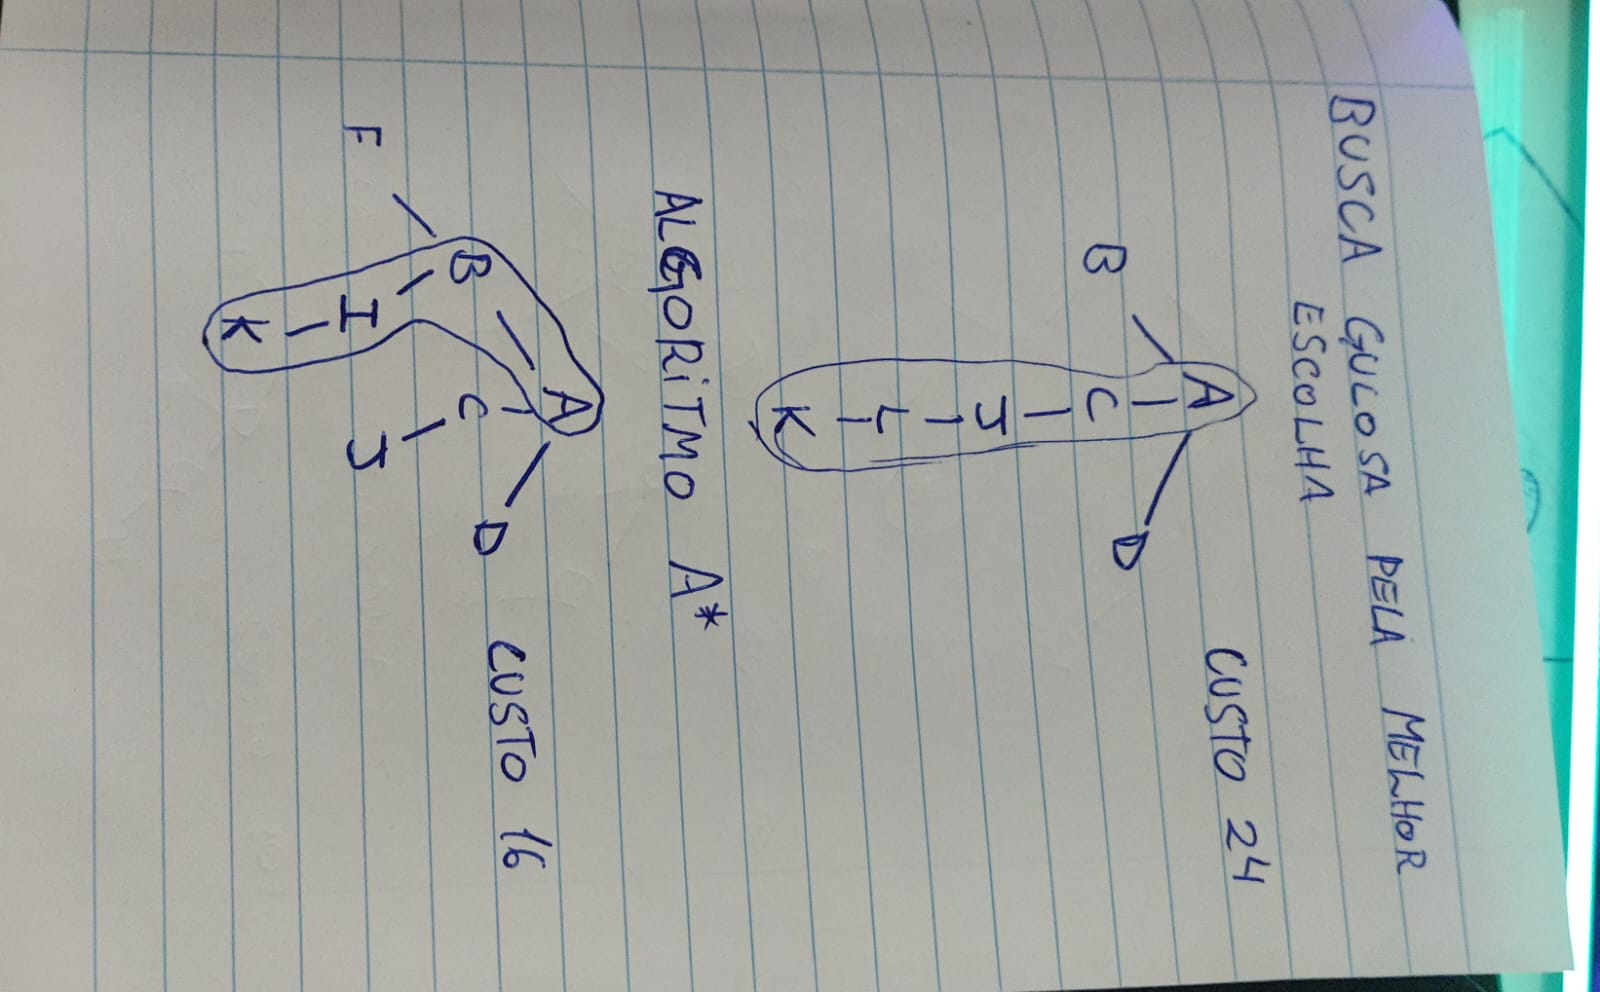 BUSCA GULOSA PELA MELHOR
ESCOLHA
CUSTO 24
A
B C D
J
L
K
ALGORiTMO A*
A
CUSTO 16
B C D
F I J
K